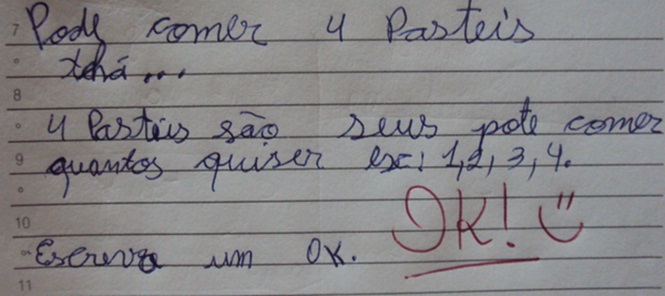 7
Pode comer 4 Pasteis
tchá...
8
4 Pasteis são seus pote comer
9
quantos quiser ex: 1,2,3,4.
10
OK!
Escreva um OK.
11